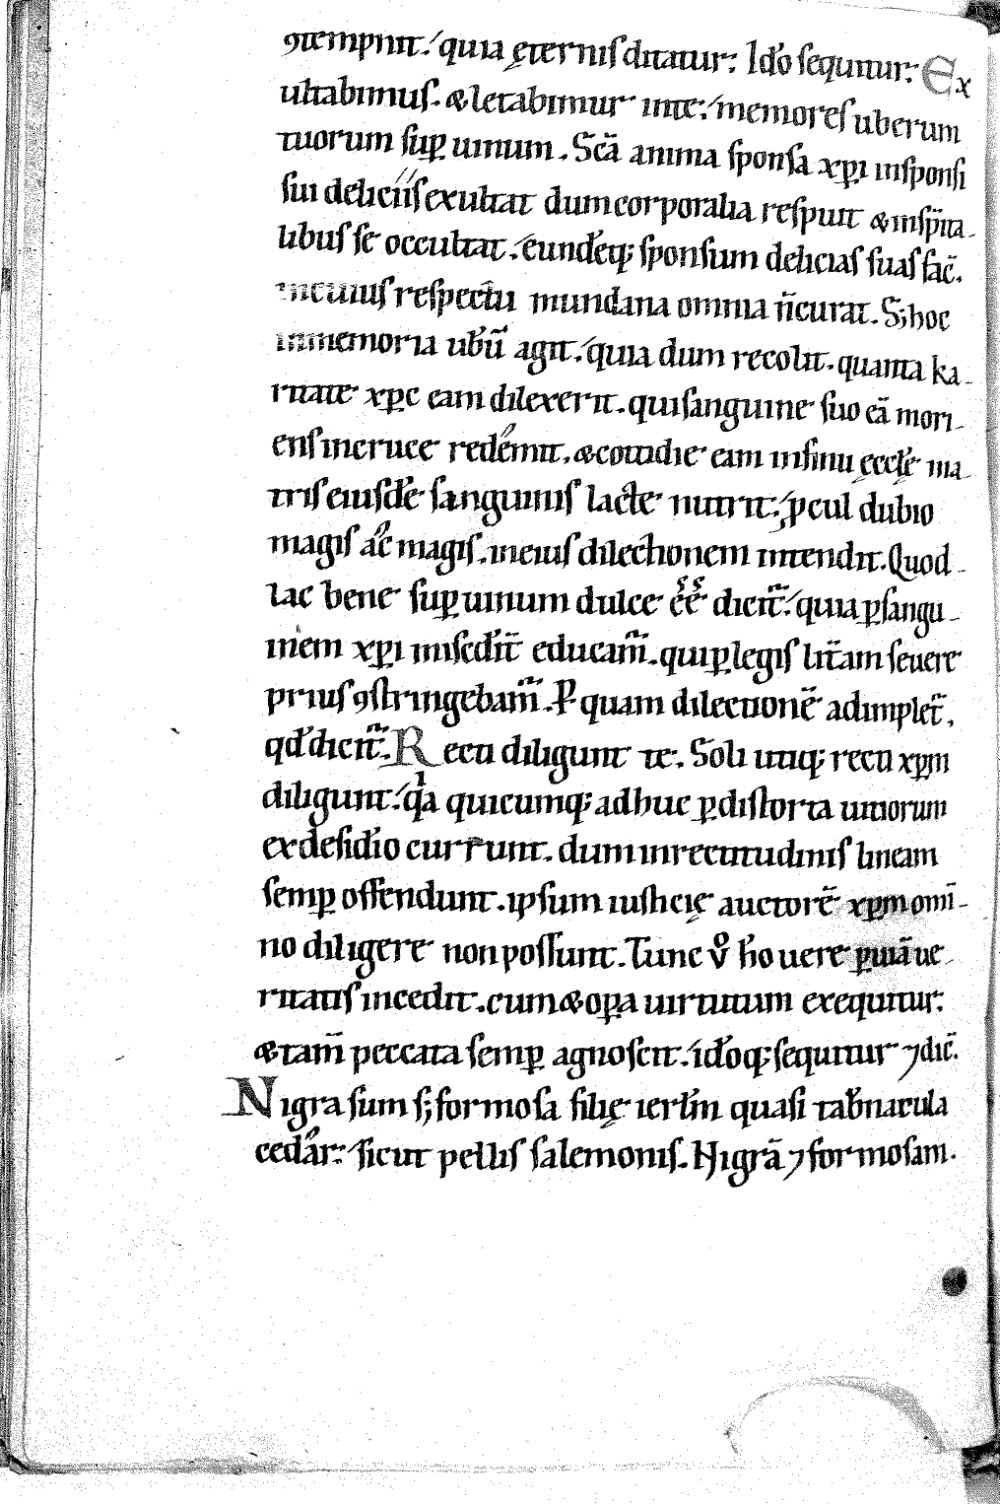 ꝯtempnit. quia ęternis ditatur: Ideo sequitur: Ex
ultabimus. & letabimur inte: memores uberum
tuorum sup̲ uinum. Sc̄a anima sponsa xp̲i insponsi
sui deliciis exultat dum corporalia respuit & insp̄ita-
libus se occultat. eundeq; sponsum delicias suas fac̄.
incuius respectu mundana omnia n̄ curat. S; hoc
inmemoria ub̄ū agit. quia dum recolit. quanta ka-
ritate xp̲c eam dilexerit. qui sanguine suo eā mori-
ens incruce redemit. & cottidie eam insinu ęccłe ma-
tris eiusdē sanguinis lacte nutrit: ꝓcul dubio
magis ac magis. ineius dilectionem intendit. Quod
lac bene sup̲ uinum dulce ēē dicit̄. quia p̲ sangu-
inem xp̲i misedit̄ educam̄. qui p̲ legis lit̄am seuere
prius ꝯstringebam̄. P̲ quam dilectionē adimplet̄,
qd̄ dicit̄. Recti diligunt te. Soli utiq; recti xp̲m
diligunt. qa quicumq; adhuc p̲ distorta uitiorum
ex desidio currunt. dum inrectitudinis lineam
semp̲ offendunt. ipsum iusticię auctorē xp̲m omī-
no diligere non possunt. Tunc v̊ ho uere p̲ uiā ue-
ritatis incedit. cum & op̲a uirtutum exequitur:
& tam̄ peccata semp̲ agnoscit. idoq; sequitur ⁊ dic̄.
Nigra sum s; formosa filię ierłm quasi tab̄nacula
cedar: sicut pellis salemonis. Nigrā ⁊ formosam.